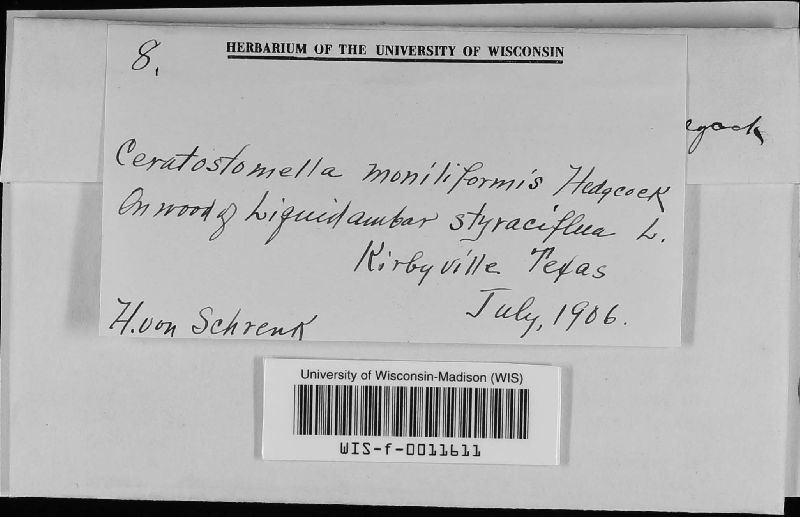 8.
HERBARIUM OF THE UNIVERSITY OF WISCONSIN
Ceratostomella moniliformis Hedgcock
On wood of Liquidambar styraciflua L.
Kirbyville Texas
July, 1906.
H. von Schrenk
University of Wisconsin-Madison (WIS)
WIS-f-0011611